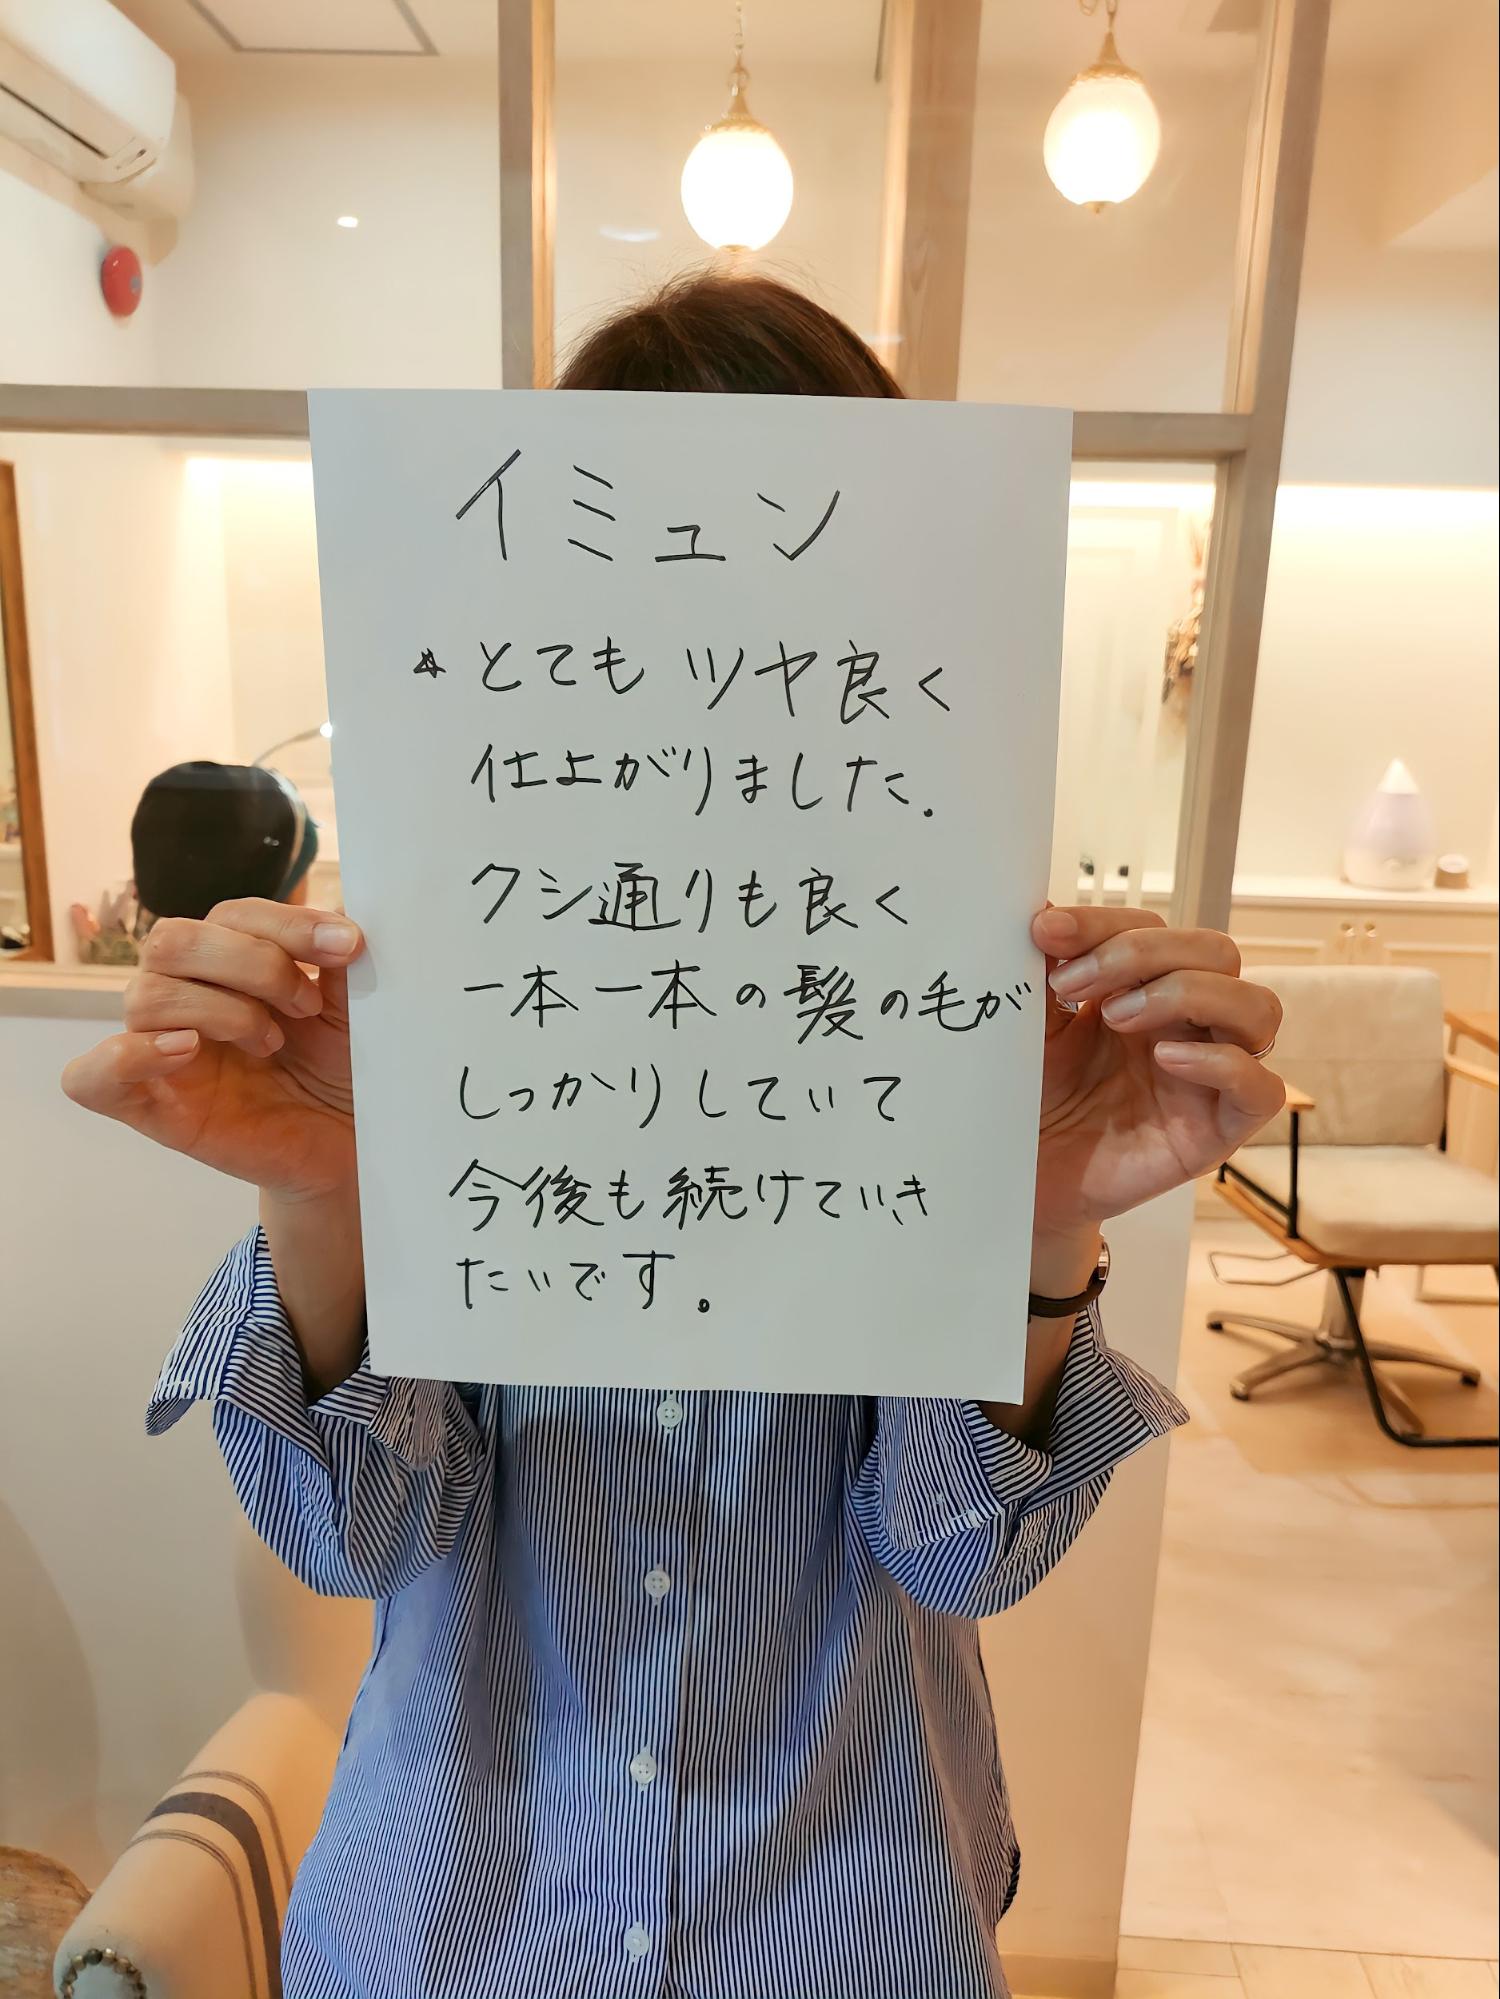 イミュン
☆とても ツヤ良く
仕上がりました.
クシ通りも良く
一本一本の髪の毛が
しっかりしていて
今後も続けていき
たいです。